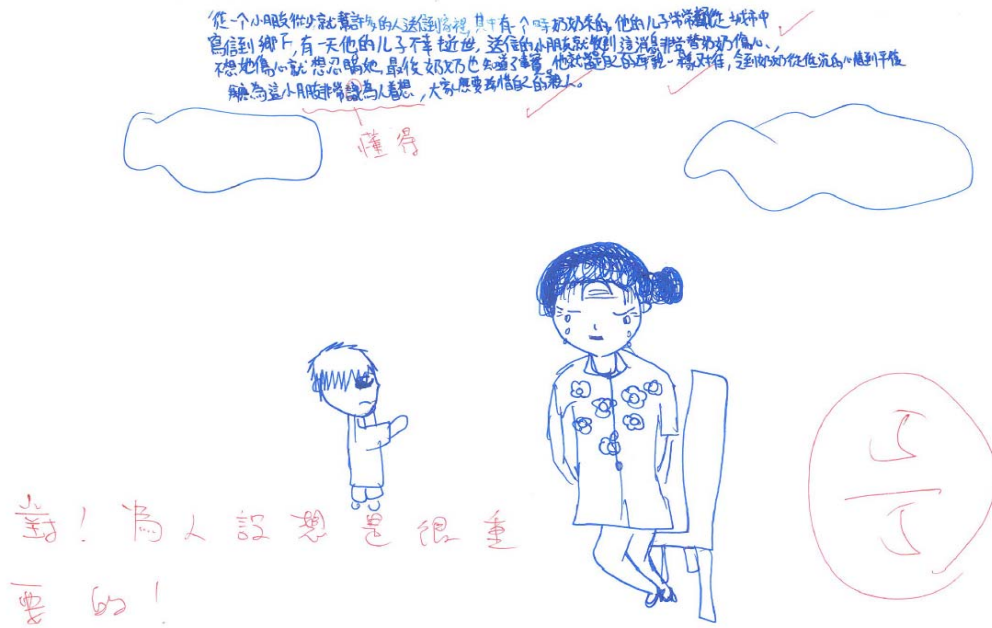 從一个小朋友從少就幫許多的人送信到家裡,其中有个時奶奶的,他的儿子常常從城市中
寫信到鄉下,有一天他的儿子不幸逝世,送信的小朋友就收到這消息非常替奶奶傷心、
不想她傷心就想忍騙她,最後奶奶也知道了事實。他就當是自己的母親一樣对待,令到奶奶從低沉的心情到平復
為這小朋友非常為人着想,大家想要珍惜自己的親人。
懂得
對!為人設想是很重
要的!
5
5